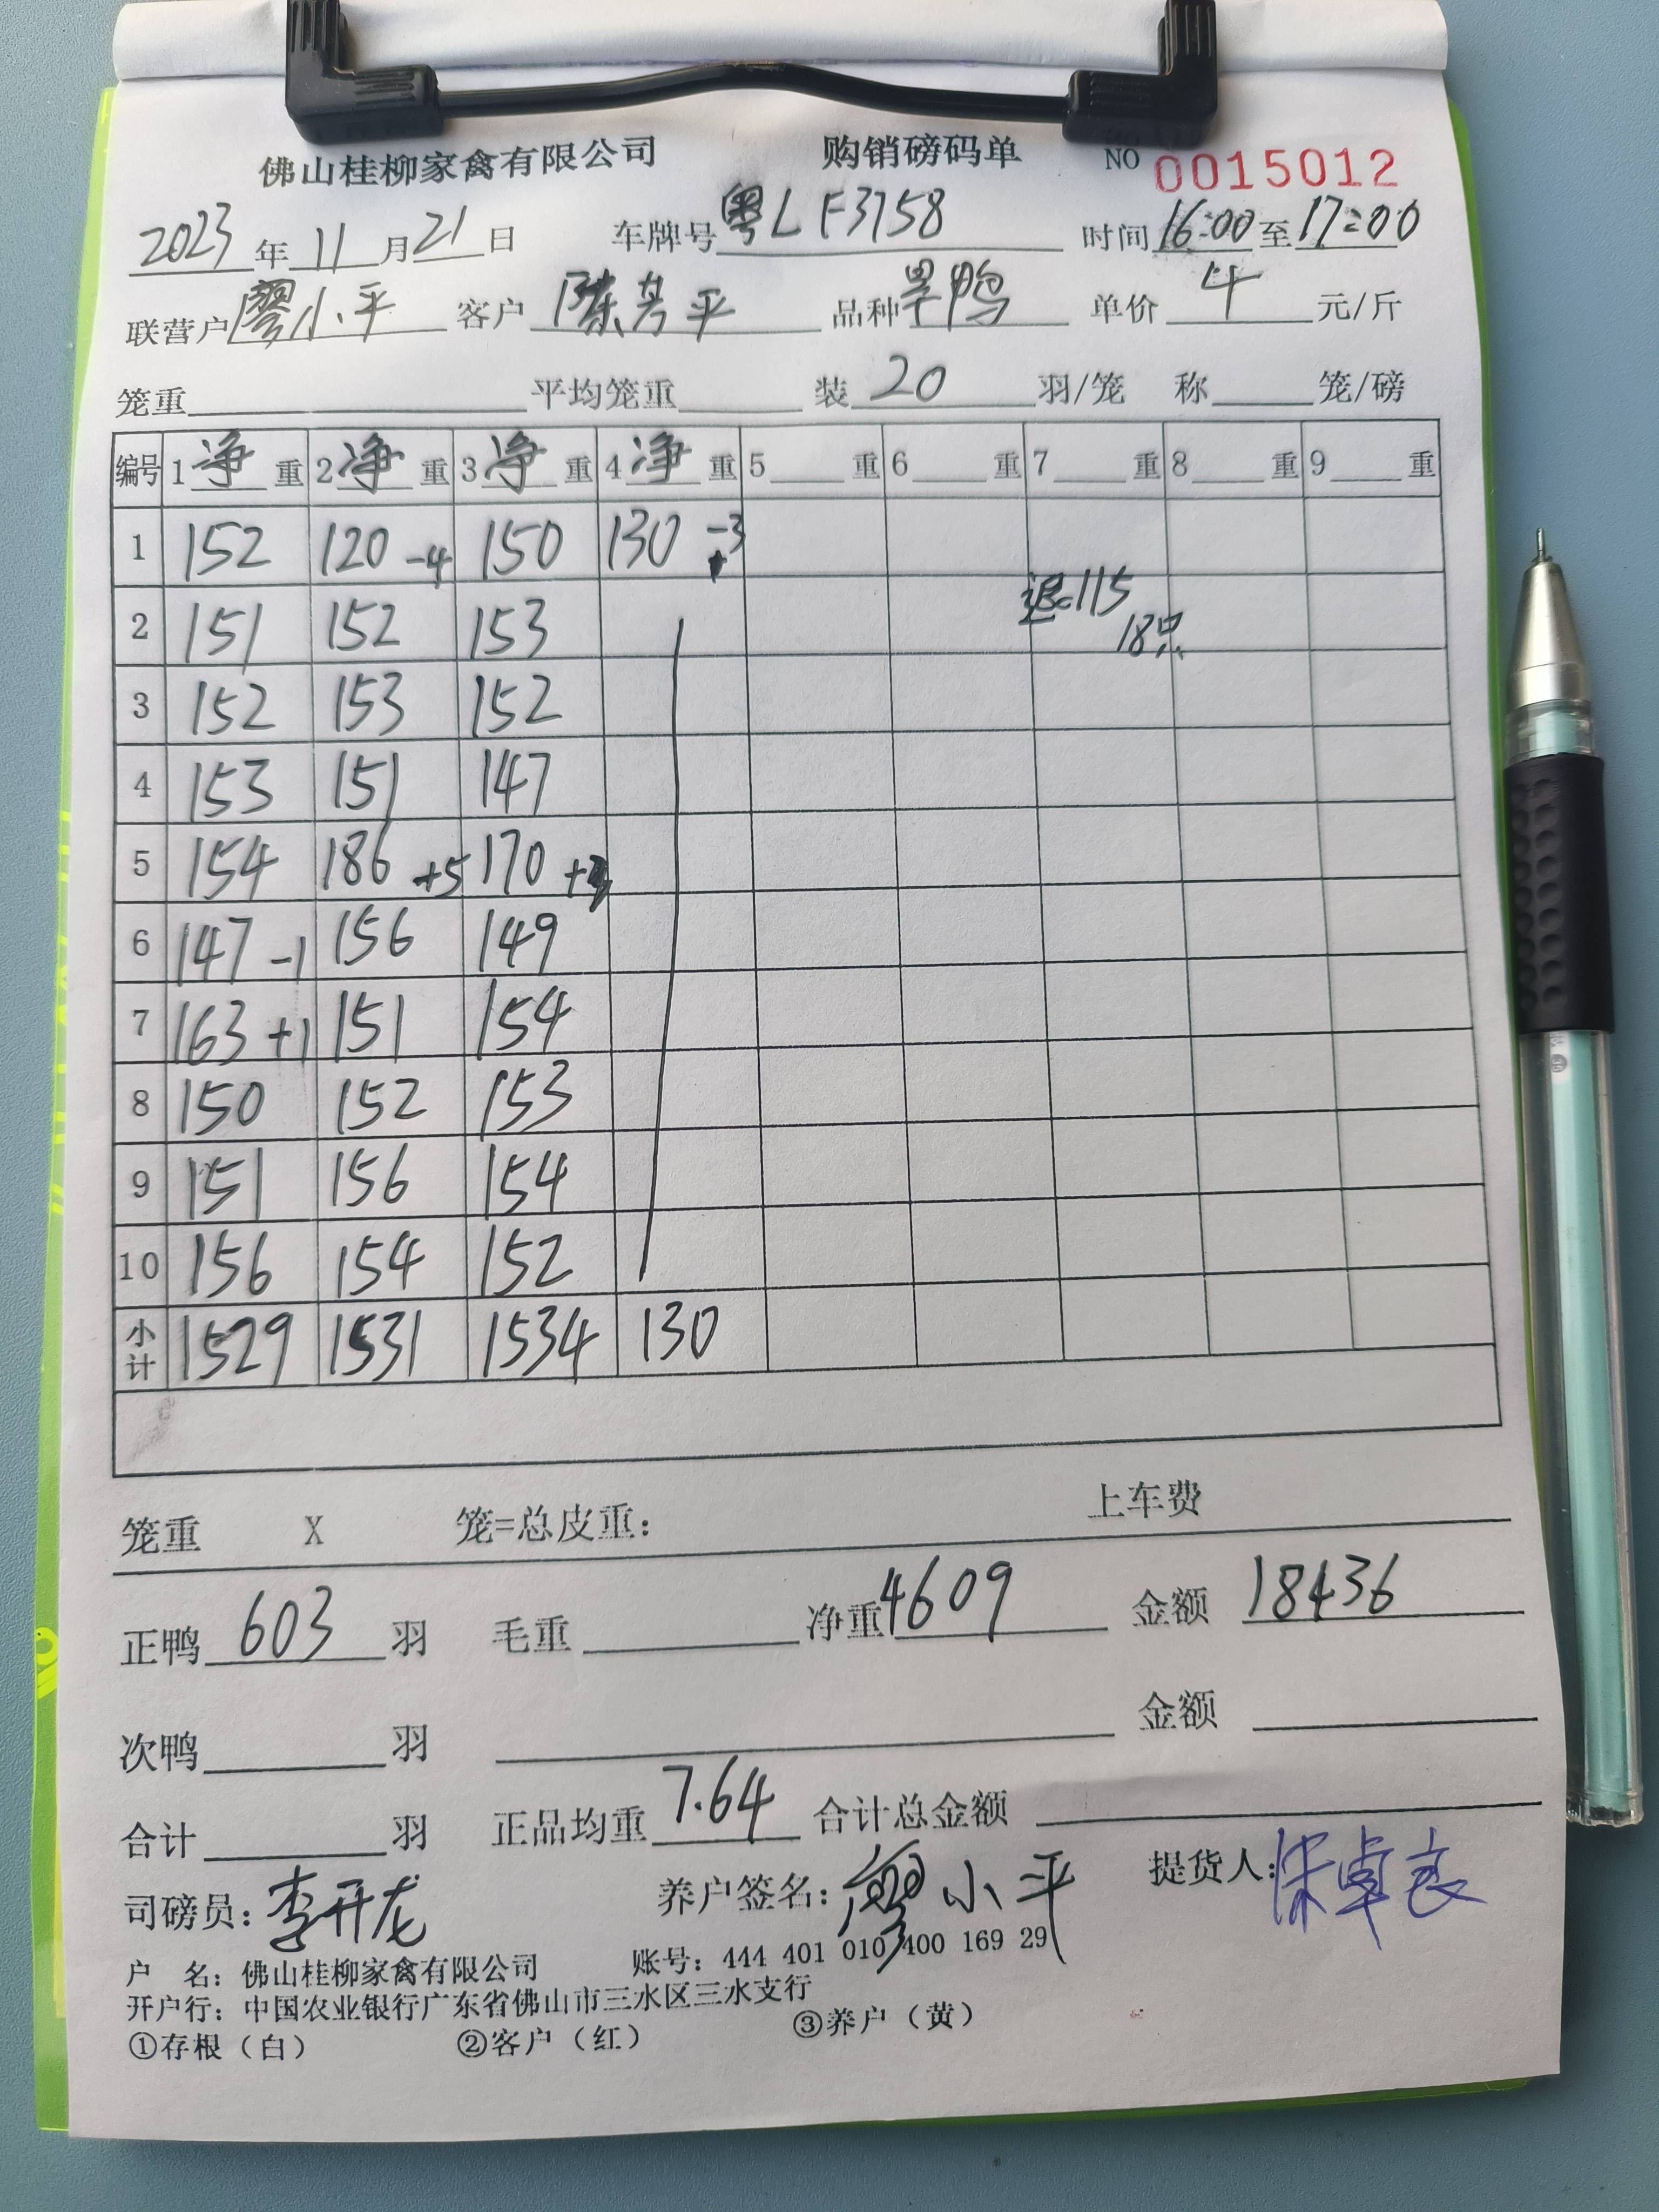 佛山桂柳家禽有限公司 购销磅码单 NO 0015012
2023年11月21日 车牌号粤LF3758 时间16:00至17:00
联营户廖小平 客户陈芳平 品种旱鸭 单价4元/斤
笼重 平均笼重 装20羽/笼 称 笼/磅
编号 1净重 2净重 3净重 4净重 5重 6重 7重 8重 9重
1 152 120-4 150 130-3
2 151 152 153 退115
18只
3 152 153 152
4 153 151 147
5 154 186+5 170
6 147-1 156 149
7 163+1 151 154
8 150 152 153
9 151 156 154
10 156 154 152
小计 1529 1531 1534 130
笼重 X 笼=总皮重： 上车费
正鸭603羽 毛重 净重4609 金额18436
次鸭 羽 金额
合计 羽 正品均重7.64 合计总金额
司磅员：李开龙 养户签名：廖小平 提货人：卓良
户 名：佛山桂柳家禽有限公司 账号：444 401 010 400 169 29
开户行：中国农业银行广东省佛山市三水区三水支行
①存根（白） ②客户（红） ③养户（黄）